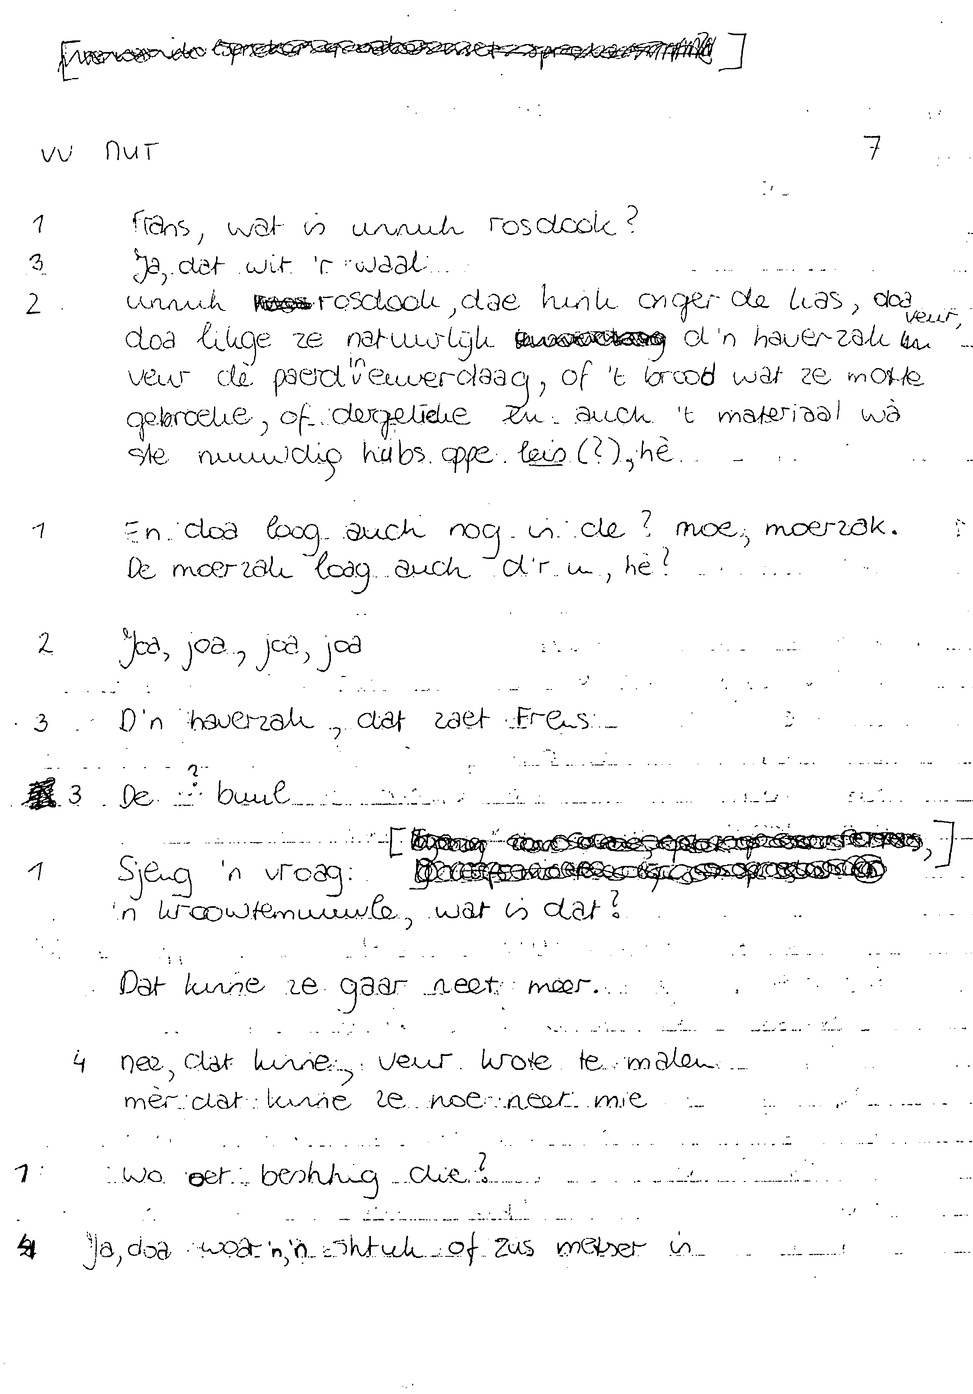 VV NUT 7
1 Frans, wat is unnuk rosdook?
3 Ja, dat wit 'r waal
2 unnuk rosdook, dae hink onger de kas, doa veur,
doa likge ze natuurlijk d'n haverzak
veur dè paerd in veuwerdaag, of 't brood wat ze moste
gebroeke, of dergelieke En auch 't materiaal wà
ste nuuwdig hübs oppe leis (?), hè
1 En doa loog auch nog in de ? moe, moerzak.
De moerzak loag auch d'r in, hè?
2 Joa, joa, joa, joa
3 D'n haverzak, dat zaet Frens
3 De ? buul
1 Sjeng 'n vroag:
'n kroowtemuuele, wat is dat?
Dat kinne ze gaar neet meer.
4 nee, dat kinne, veur krote te malen
mèr dat kinne ze noe neet mie
1 wo oet beshtig die?
4 Ja, doa woar 'n, 'n shtuk of zus metser in